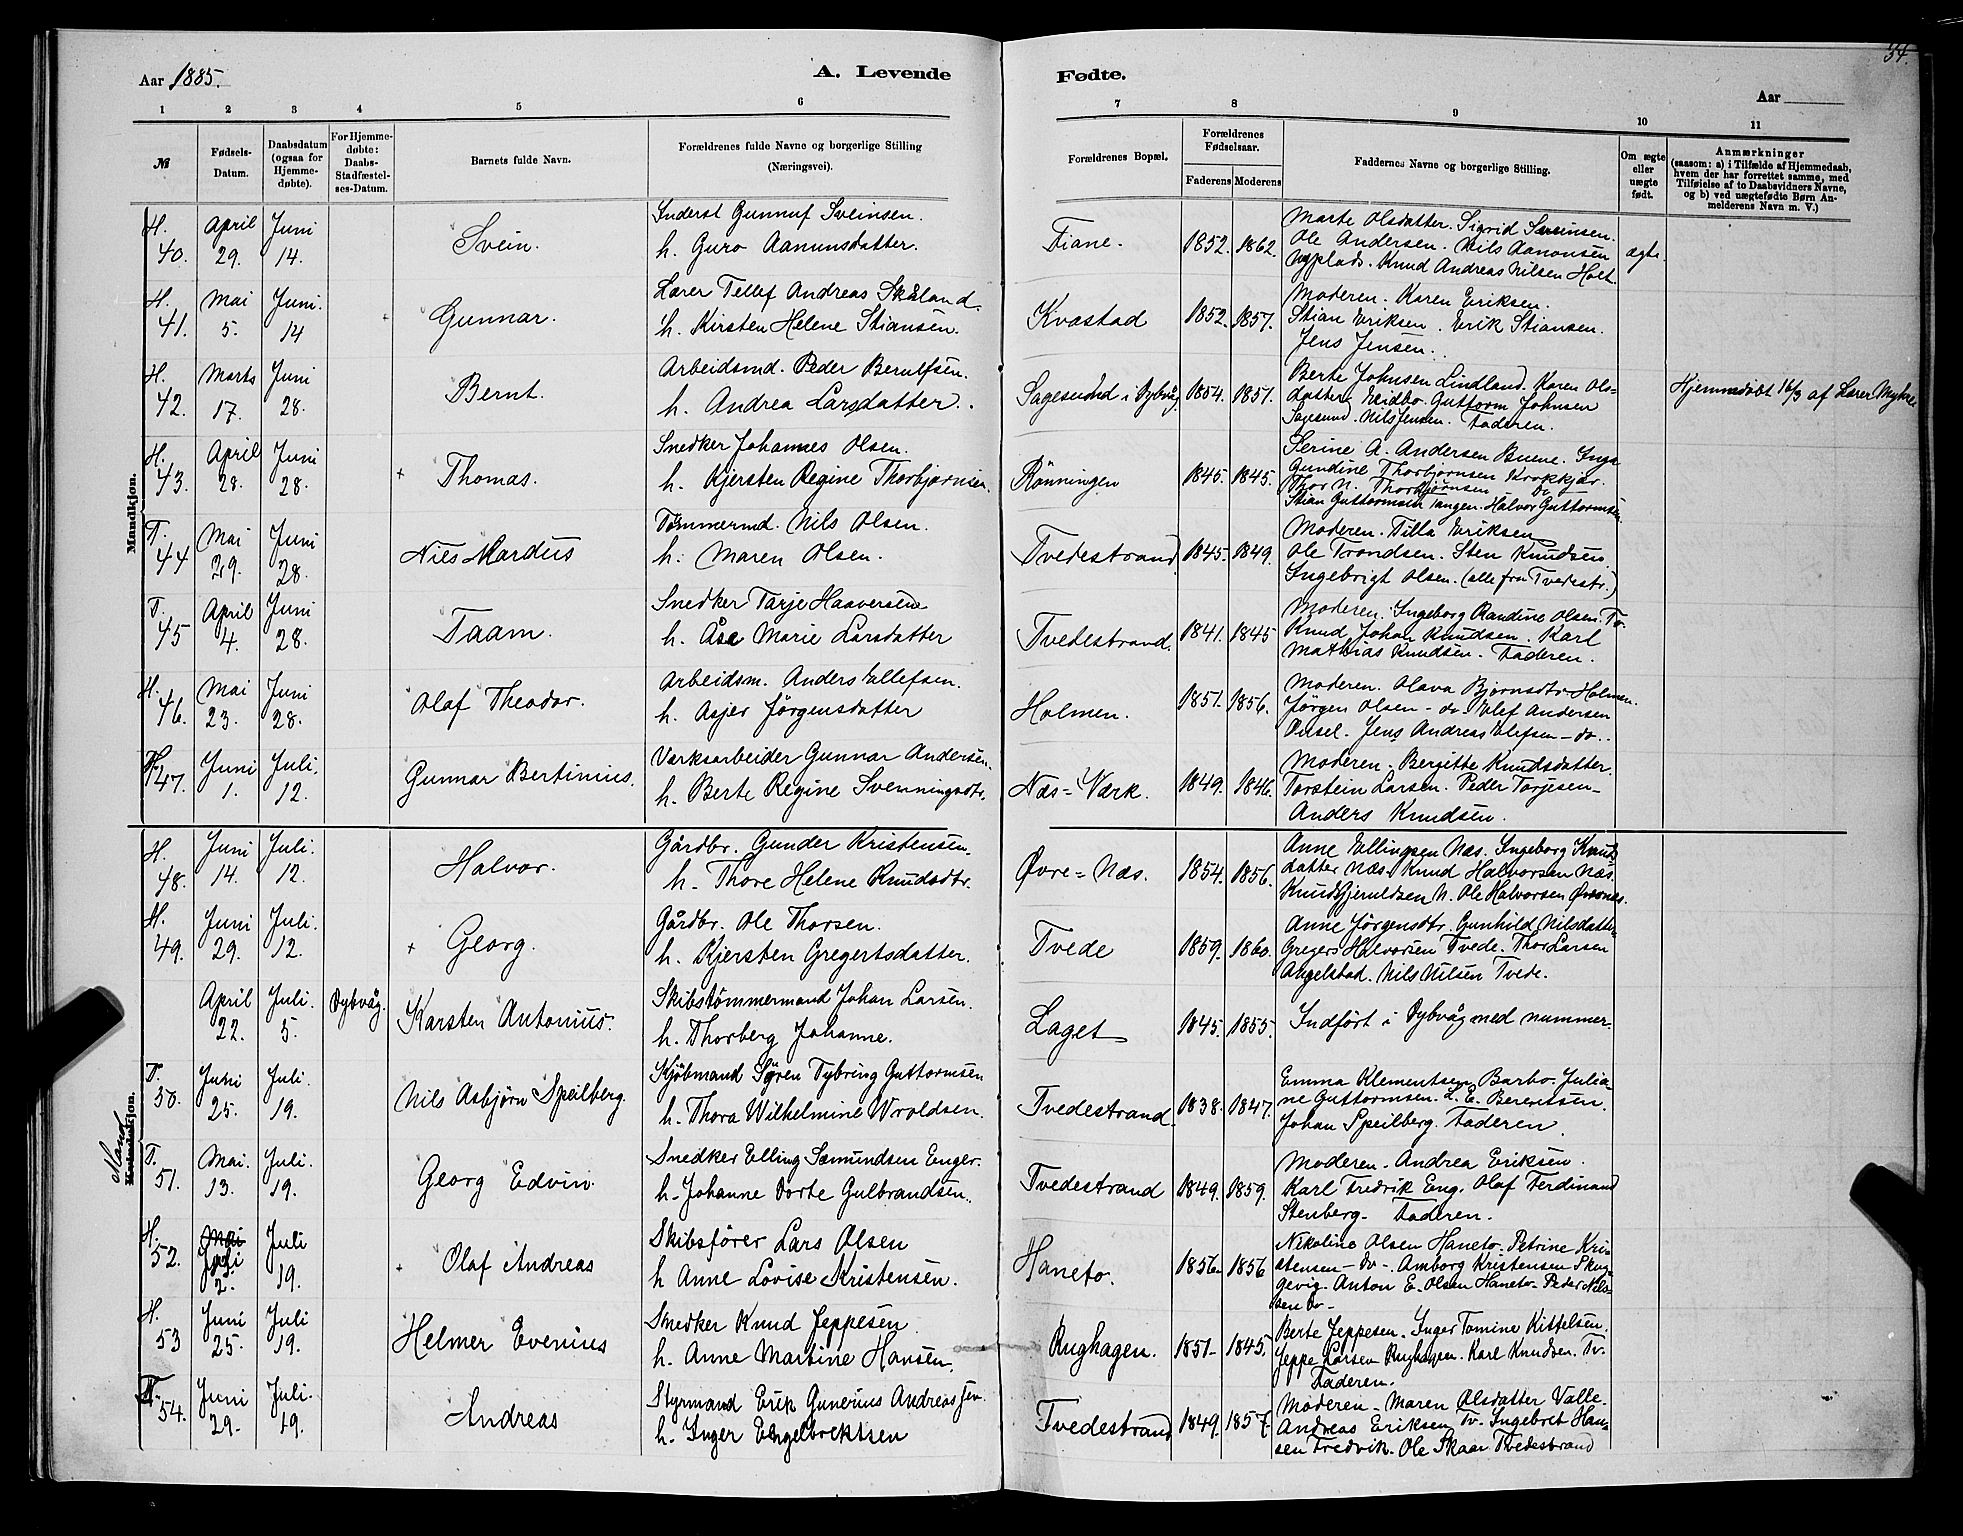 34.
Aar 1885.
A. Levende
Fødte.
Aar
1 2 3 4 5 6 7 8 9 10 11
№
Fødsels-
Datum.
Daabsdatum
(ogsaa for
Hjemme-
døbte).
For Hjemme-
døbte:
Daabs-
Stadfæstel-
ses-Datum.
Barnets fulde Navn.
Forældrenes fulde Navne og borgerlige Stilling
(Næringsvei).
Forældrenes Bopæl.
Forældrenes
Fødselsaar.
Faderens Moderens
Faddernes Navne og borgerlige Stilling.
Om ægte
eller
uægte
født.
Anmærkninger
(saasom: a) i Tilfælde af Hjemmedaab,
hvem der har forrettet samme, med
Tilføielse af to Daabsvidners Navne,
og b) ved uægtefødte Børn An-
melderens Navn m. V.)
Mandkjøn.
H. 40. April 29. Juni 14.
Svein.
Inderst Gunnuf Sveinsen.
h. Guro Aanunsdatter.
Fiane. 1852. 1862.
Marte Olsdatter. Sigrid Sveinsen.
Ole Andersen. Nils Aanonsen
Nyplads. Knud Andreas Nilsen Holt.
ægte.
H. 41. Mai 5. Juni. 14
Gunnar.
Lærer Tellef Andreas Skåland.
h. Kirsten Helene Stiansen.
Kvastad 1852. 1857.
Moderen. Karen Eriksen.
Stian Eriksen. Erik Stiansen.
Jens Jensen.
H. 42. Marts 17. Juni 28.
Bernt.
Arbeidsmd. Peder Berulfsen.
h. Andrea Larsdatter.
Sagesund i Dybvåg. 1854. 1851.
Berte Johnsen Lindland. Karen Ols-
datter Eidbo. Guttorm Johnsen
Sagesund. Nils Jensen. Faderen.
Hjemmedøbt 16/3 af Lærer Myhre
H. 43. April 28. Juni 28.
+ Thomas.
Snedker Johannes Olsen.
h. Kjersten Regine Thorbjørnsen.
Rönningen 1845. 1845.
Serine A. Andersen Buene. Inge
Gundine Thorbjørnsen Krokkjær.
Thor N. Thorbjørnsen do
Stian Guttormsen Tangen. Halvor Guttormsen.
T. 44 Mai 29. Juni 28.
Nils Mardus
Tømmermd. Nils Olsen.
h. Maren Olsen.
Tvedestrand 1845. 1849.
Moderen. Tilla Eriksen
Ole Trondsen. Sten Knudsen.
Ingebrigt Olsen. (alle fra Tvedestr.)
T. 45 April 4. Juni 28.
Taam.
Snedker Tarje Haaversen
h. Åse Marie Larsdatter
Tvedestrand. 1841. 1845
Moderen. Ingeborg Randine Olsen. Tv.
Knud Johan Knudsen. Karl
Mathias Knudsen. Faderen.
H. 46. Mai 23. Juni 28.
Olaf Theodor.
Arbeidsm. Anders Ellefsen.
h. Asjer Jörgensdatter
Holmen. 1851. 1856.
Moderen. Olava Bjornsdtr Holmen.
Jørgen Olsen - do - Elef Andersen
Jens Andreas Elefsen - do.
H. 47. Juni 1. Juli. 12.
Gunnar Bertinius.
Værksarbeider Gunnar Andersen.
h. Berte Regine Svenningsdtr.
Næs = Værk. 1849. 1846.
Moderen. Bergitte Knudsdatter.
Torstein Larsen. Peder Torjesen -
Anders Knudsen.
Mand
Kvindekjøn.
H. 48. Juni 14. Juli. 12.
Halvor.
Gårdbr. Gunder Kristensen.
h. Thore Helene Knudsdtr.
Øvre = Næs. 1854. 1856.
Anne Ellingsen Næs. Ingeborg Knuds-
datter Næs. Knud Halvorsen Næs.
Knud Gjeruldsen N. Ole Halvorsen Øvrenæs.
H. 49. Juni 29. Juli. 12.
+ Georg.
Gårdbr. Ole Thorsen.
h. Kjersten Gregertsdatter.
Tvede 1859. 1860.
Anne Jörgensdtr. Gunhild Nilsdatter.
Gregers Halvorsen Tvede. Thor Larsen
Angelstad. Nils Nilsen Tvede.
April 22. Juli. 5. Dybvåg.
Karsten Antonius.
Skibstömmermand Johan Larsen.
h. Thorberg Johanne.
Laget 1845. 1855.
Indfört i Dybvåg med nummer.
T. 50. Juni 25. Juli. 19.
Nils Asbjörn Speilberg.
Kjöbmand Sören Dybring Guttormsen
h. Thora Wilhelmine Wroldsen.
Tvedestrand. 1838. 1847.
Emma Klementsen Barbo. Julia-
ne Guttormsen. L. E. Berentsen.
Johan Speilberg. Faderen.
T. 51. Mai. 13. Juli. 19.
Georg Edvin.
Snedker Elling Sæmundsen Enger.
h. Johanne Dorte Gulbrandsen.
Tvedestrand 1849. 1859.
Moderen. Andrea Eriksen.
Karl Fredrik Eng. Olaf Ferdinand
Stenberg. Faderen.
H. 52. Mai Juli 2. Juli 19.
Olaf Andreas
Skibsförer Lars Olsen
h Anne Lovise Kristensen.
Haneto. 1856. 1856
Nikoline Olsen Haneto. Petrine Kri-
stensen - do -. Amborg Kristensen Skug-
gevig. Anton E. Olsen Haneto. Peder Nils-
sen do -
H. 53 Juni 25. Juli 19.
Helmer Evenius
Snedker Knud Jeppesen
h. Anne Martine Hansen.
Rughagen. 1851- 1845.
Berte Jeppesen. Inger Tomine Kittelsen.
Jeppe Larsen Rughagen. Karl Knudsen. Tv.
Faderen.
T. 54. Juni 29. Juli. 19.
Andreas
Styrmand Erik Gunerius Andreassen.
h. Inger Engelbrektsen
Tvedestrand 1849. 1857.
Moderen - Maren Olsdatter Valle.
Andreas Eriksen Tv. Ingebret Han-
sen Fredvik. Ole Skaar Tvedestrand